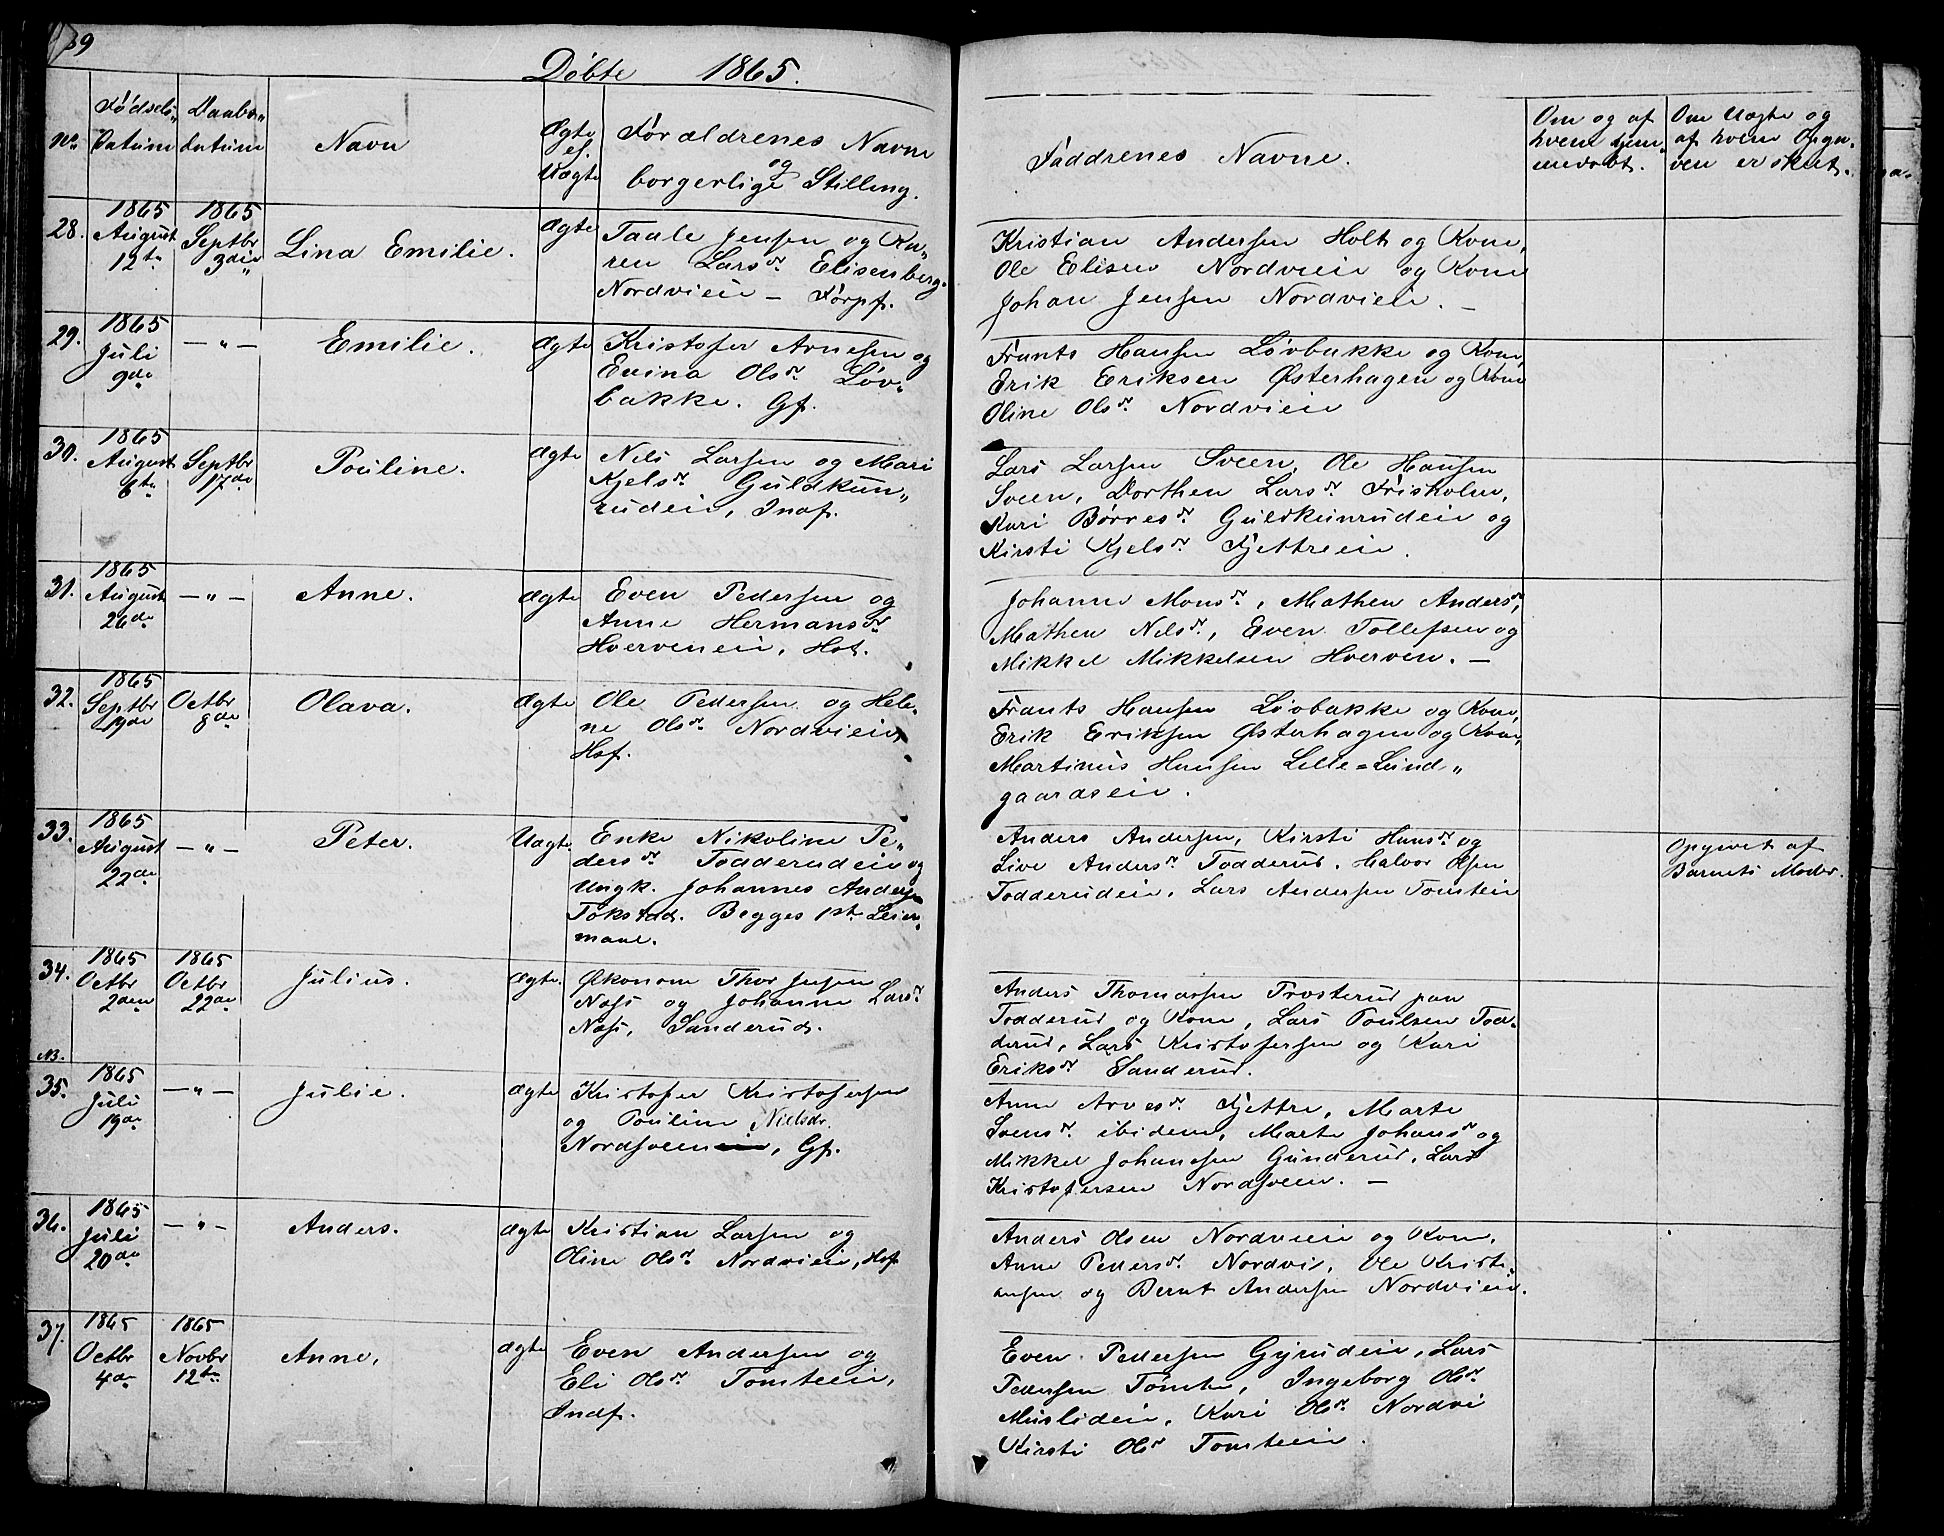 39
Døbte 1865.
No. Fødsels- Datum
Daabs- datum
Navn
Ægte el. Uægte
Forældrenes Navne og borgerlige Stilling.
Faddrenes Navne.
Om og af hvem hjemmedøbt.
Om Uægte og af hvem Opgiven er skeet.
28. 1865 August 12te
1865 Septbr 3die
Lina Emilie.
Ægte
Taale Jensen og Ka-
ren Larsdr. Elisenberg-
Nordvieie – Forpf.
Kristian Andersen Holt og Kone,
Ole Elisen Nordvieie og Kone
Johan Jensen Nordvieie. –
29. 1865 Juli 9de
– „ –
Emilie.
Ægte
Kristofer Arnesen og
Evina Olsdr. Løv-
bakke. Gf.
Frants Hansen Løvbakke og Kone,
Erik Eriksen Østerhagen og Kone
Oline Olsdr. Nordvieie
30. 1865 August 6te
Septbr 17de
Pouline.
Ægte
Nils Larsen og Mari
Kjelsdr. Guldkun-
rudeie, Inds.
Lars Larsen Sveen, Ole Hansen
Sveen, Dorthea Larsdr. Frisholm,
Kari Børresdr. Guldkunrudeie og
Kirsti Kjelsdr. Fjettreeie.
31. 1865 August 26de
– „ –
Anne.
Ægte
Even Pedersen og
Anne Hermansdr.
Hverveneie, Hst.
Johanne Monsdr., Mathea Andersdr.,
Mathea Nelsdr., Even Tollefsen og
Mikkel Mikkelsen Hverven. –
32. 1865 Septbr 19de
Octbr 8de
Olava.
Ægte
Ole Pedersen og Hele-
ne Olsdr. Nordvieie,
Hsf.
Frants Hansen Løvbakke og Kone,
Erik Eriksen Østerhagen og Kone,
Martinus Hansen Lille=Lund-
gaardseie.
33. 1865 August 22de
– „ –
Peter.
Uægte
Enke Nikoline Pe-
dersdr. Todderudeie og
Ungk. Johannes Anders.
Tokstad. Begges 1ste Leier-
maal.
Anders Andersen, Kirsti Hansdr. og
Live Andersdr. Todderud, Halvor Olsen
Todderudeie, Lars Andersen Tomteeie
Opgivet af
Barnets Moder.
34. 1865 Octbr 2den
1865 Octbr 22de
Julius.
Ægte.
Økonom Thor Jensen
Næss og Johanne Larsdr.
Næss, Sanderud.
Anders Thomassen Trosterud paa
Todderud og Kone, Lars Poulsen Tod-
derud, Lars Kristofersen og Kari
Eriksdr. Sanderud.
NB.
35. 1865 Juli 19de
– „ –
Julie.
Ægte
Kristofer Kristofersen
og Pouline Nielsdr.
Nordsveen, Gf.
Anne Arvesdr. Fjettre, Marte
Svensdr. ibidem, Marte Johansdr. og
Mikkel Johansen Gunderud, Lars
Kristofersen Nordsveen. –
36. 1865 Juli 20de
– „ –
Anders.
Ægte
Kristian Larsen og
Oline Olsdr. Nordvieie, Hsf
Anders Olsen Nordvieie og Kone,
Anne Pedersdr. Nordvi, Ole Kristi-
ansen og Bernt Andersen Nordvieie.
37. 1865 Octbr 4de
1865 Novbr 12te
Anne,
Ægte
Even Andersen og
Eli Olsdr. Tomteeie,
Indf.
Even Pedersen Gyrudeie, Lars
Pedersen Tomte, Ingeborg Olsdr.
Muslideie, Kari Olsdr. Nordvi
Kirsti Olsdr Tomteeie.